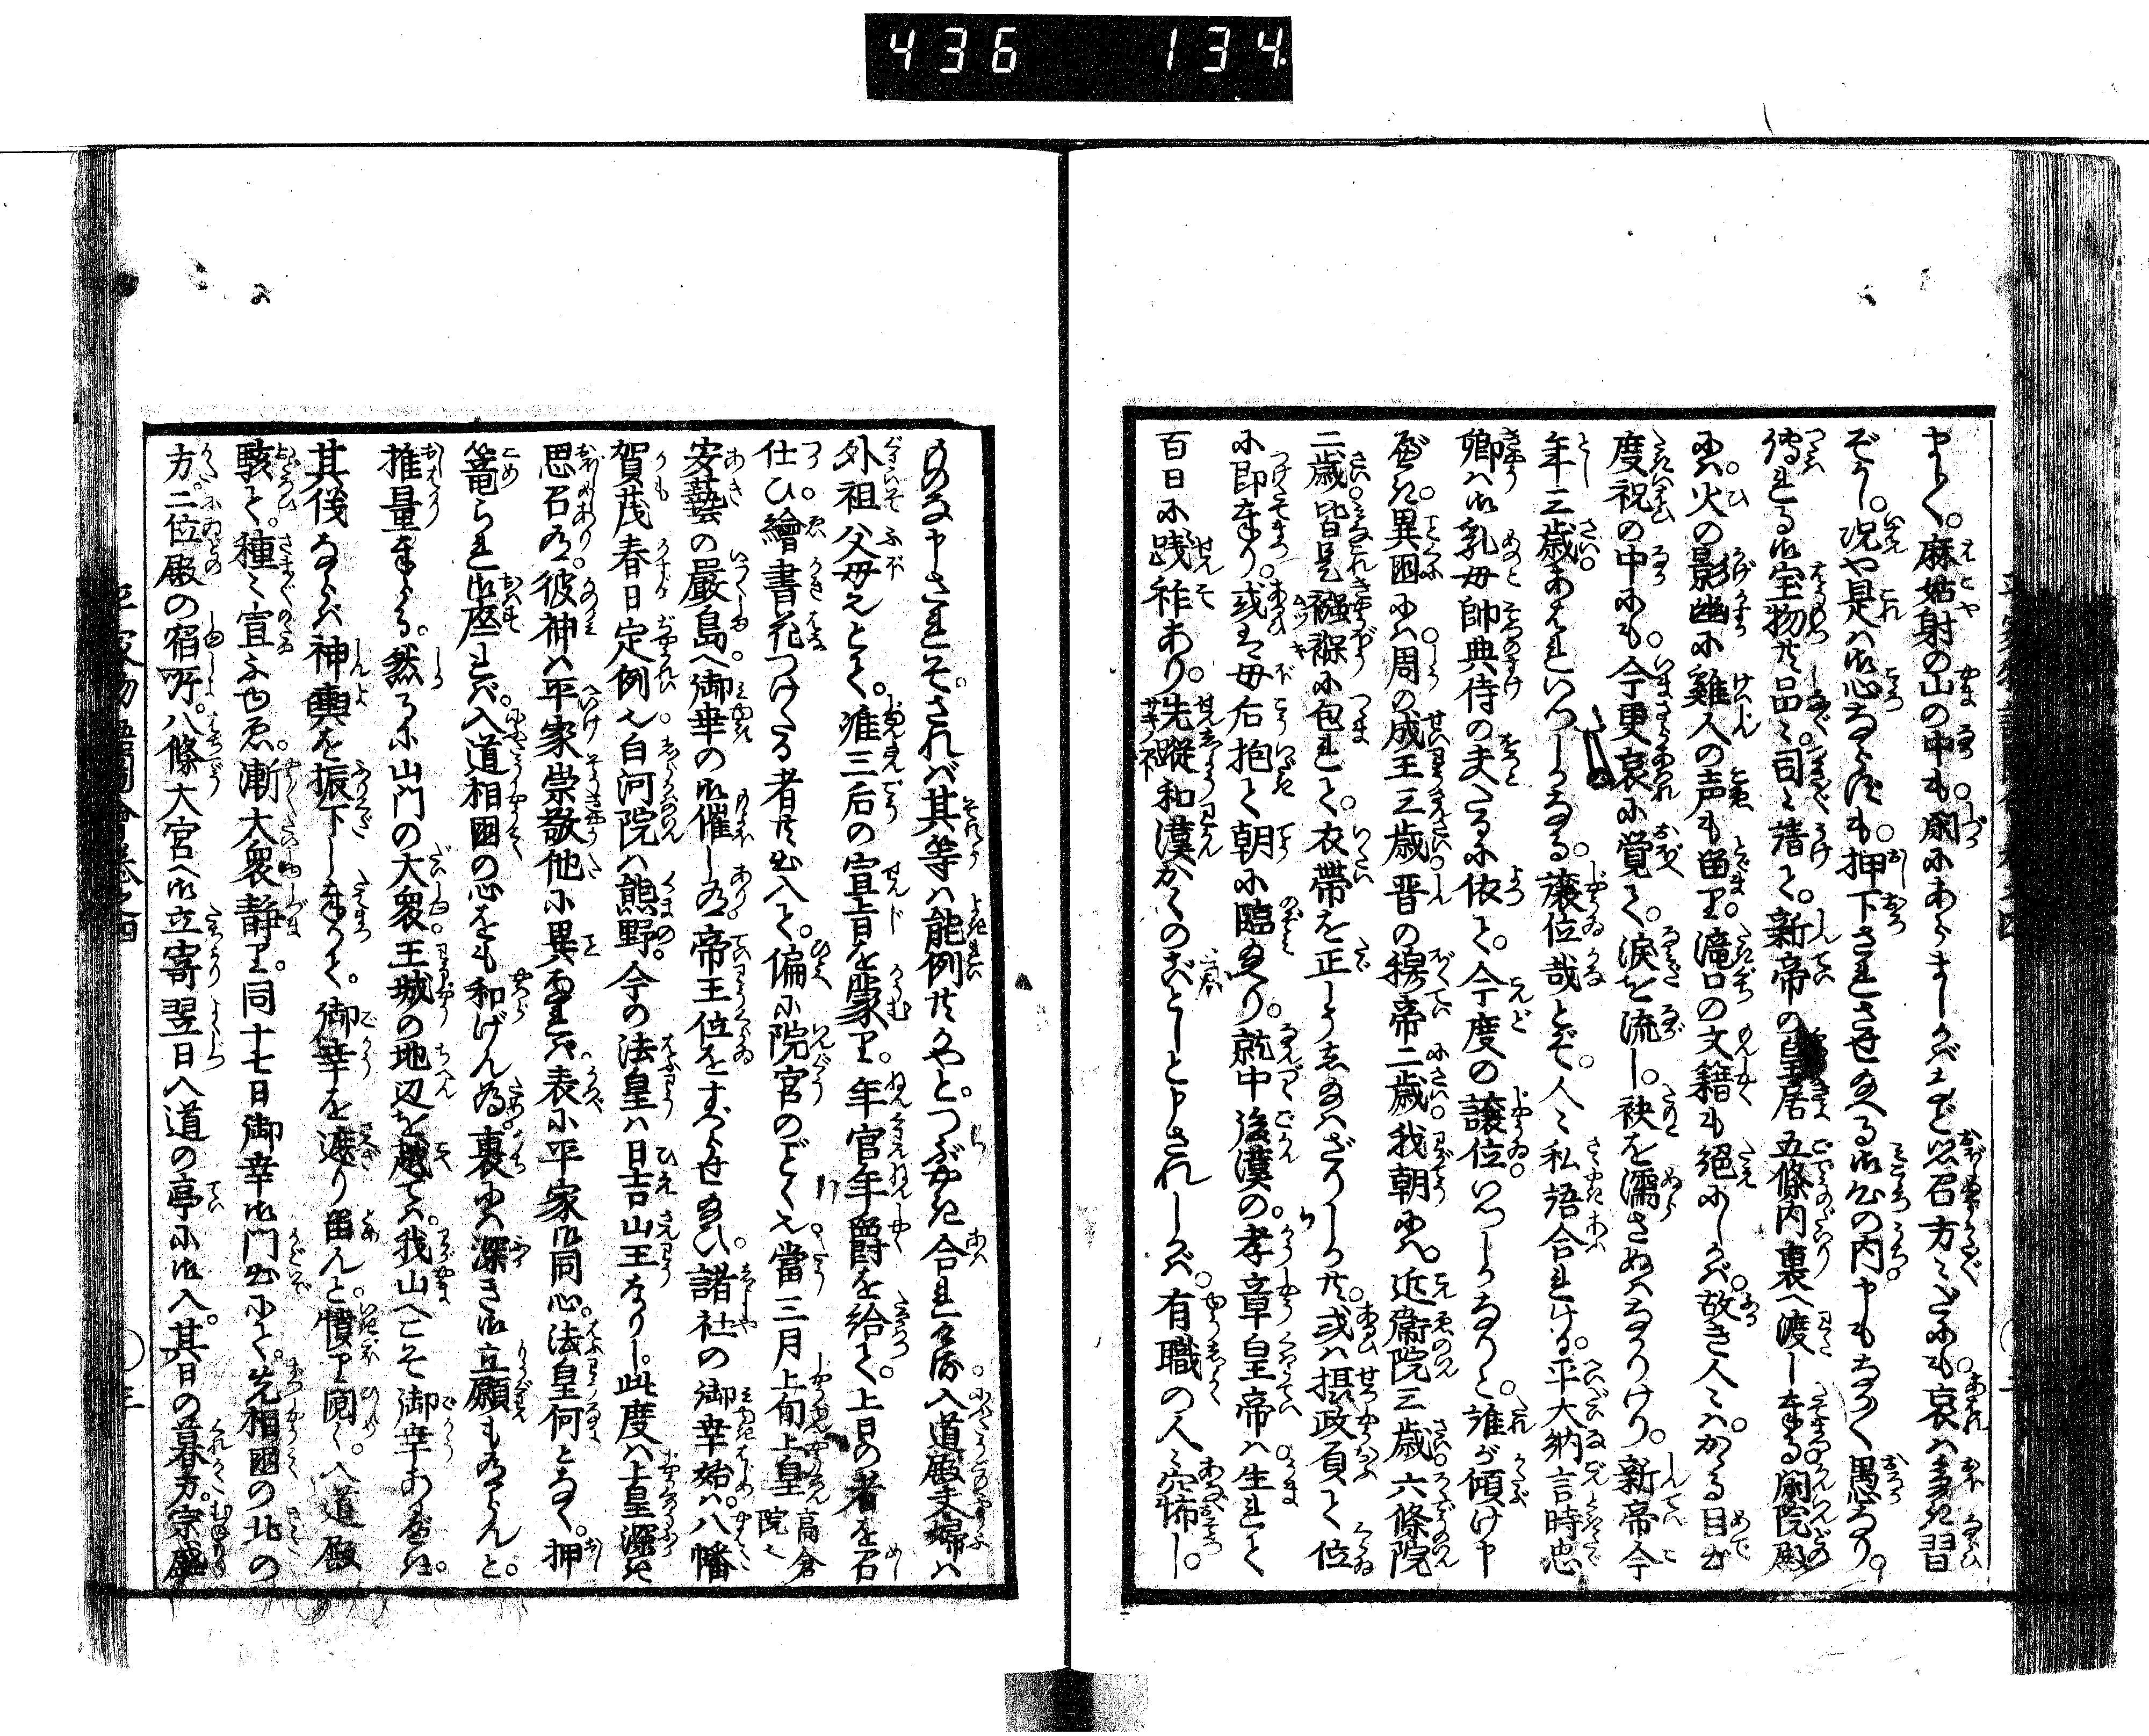 436 134.
やらく。麻姑射の山の中も。閑にあらましかバなど思召方ざまにも。哀ハ多き習
ぞかし。況や是ハ御心ならずも。押下されさせ給へる御心の内。申もなか〱愚なり。
傳はれる御宝物共品〻。司〻請て。新帝の皇居五條内裏へ渡し奉る。閑院殿
にハ。火の影幽に雞人の声も留り。滝口の文籍も絕にしかバ。故き人〻ハ。かゝる目出
度祝の中にも。今更哀に覚て。涙を流し。袂を濡さぬハなかりけり。新帝今
年三歳。あはれいつしかなる。譲位哉とぞ。人〻私語合れける。平大納言時忠
卿ハ御乳母帥典侍の夫たるに依て。今度の譲位いつしかなりと。誰が傾け申
べき。異国にハ。周の成王三歳晋の穆帝二歳。我朝にハ。近衛院三歳。六條院
二歳。皆是襁褓に包れて。衣帯を正しうし給ハざりしか共。或ハ摂政負て位
に即奉り。或ハ母后抱て朝に臨給へり。就中後漢の。孝章皇帝ハ。生れて
百日に践祚あり。先蹤和漢かくのごとしと申されしかバ。有職の人〻。穴怖し。
ものな申されそ。されバ其等ハ能例共かやと。つぶやき合れける。入道殿夫婦ハ
外祖父母とて。准三后の宣旨を蒙り。年官年爵を給て。上日の者を召
仕ひ。繪書花つけたる者共出入て。偏に院宮のごとく也。當三月上旬上皇高倉院〻
安藝の嚴島へ御幸の御催し有。帝王位をすべらせ給ひ。諸社の御幸始ハ。八幡
賀茂春日定例也。白河院ハ熊野。今の法皇ハ日吉山王なりし。此度ハ上皇深き
思召有。彼神ハ平家崇敬他に異なれバ。表に平家御同心。法皇何となく。押
篭られ御座しませバ。入道相国の心をも和げん為。裏にハ深き御立願も有らんと。
推量奉る。然るに山門の大衆。王城の地辺を越てハ。我山へこそ御幸あるべき。
其儀ならバ神輿を振下し奉りて。御幸を遮り留んと。憤り罵〻。入道殿
駭て。種〻宣ふゆゑ。漸大衆静り。同十七日御幸御門出にて。先相国の北の
方二位殿の宿所。八條大宮へ御立寄翌日入道の亭に御入。其日の暮方。宗盛